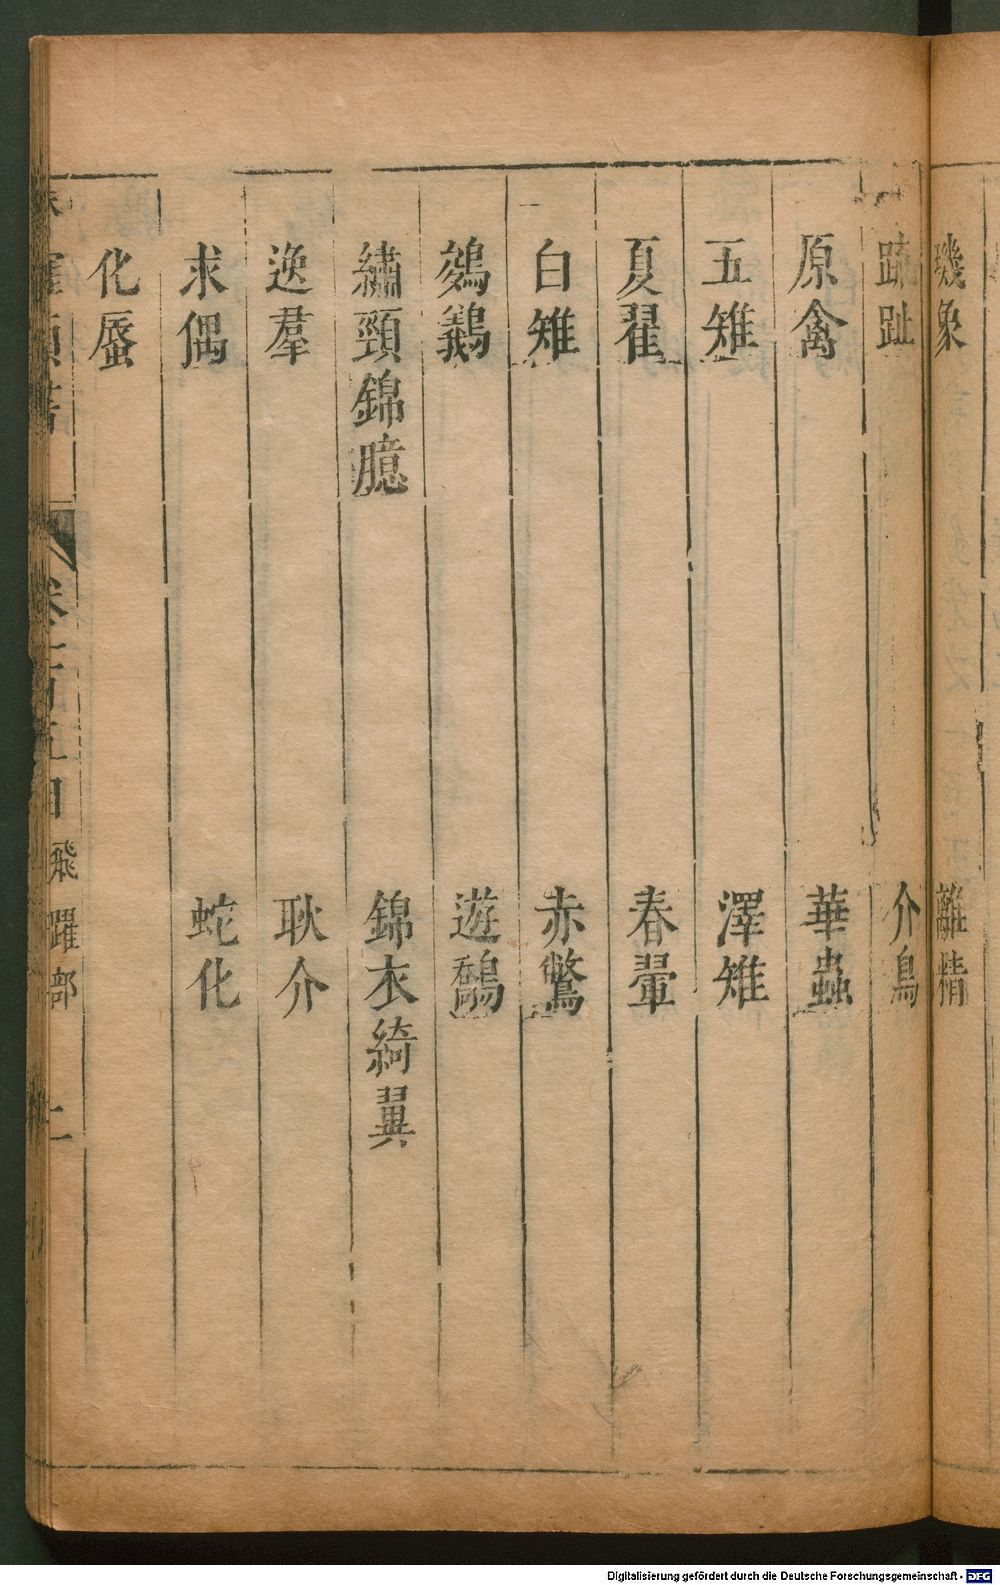 璣象 離精
疏趾 介鳥
原禽 華蟲
五雉 澤雉
夏翟 春翬
白雉 赤鷩
鵕鸃 遊鷮
繡頸錦臆 錦衣綺翼
逸羣 耿介
求偶 蛇化
化蜃
卷一百五目 飛躍部 七
Digitalisierung gefördert durch die Deutsche Forschungsgemeinschaft - DFG